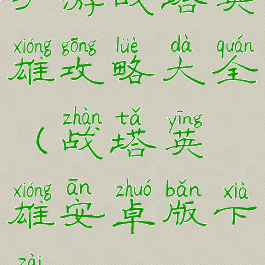 游战塔英
xióng gōng lüè dà quán
雄攻略大全
zhàn tǎ yīng
(战塔英
xióng ān zhuó bǎn xià
雄安卓版下
zài